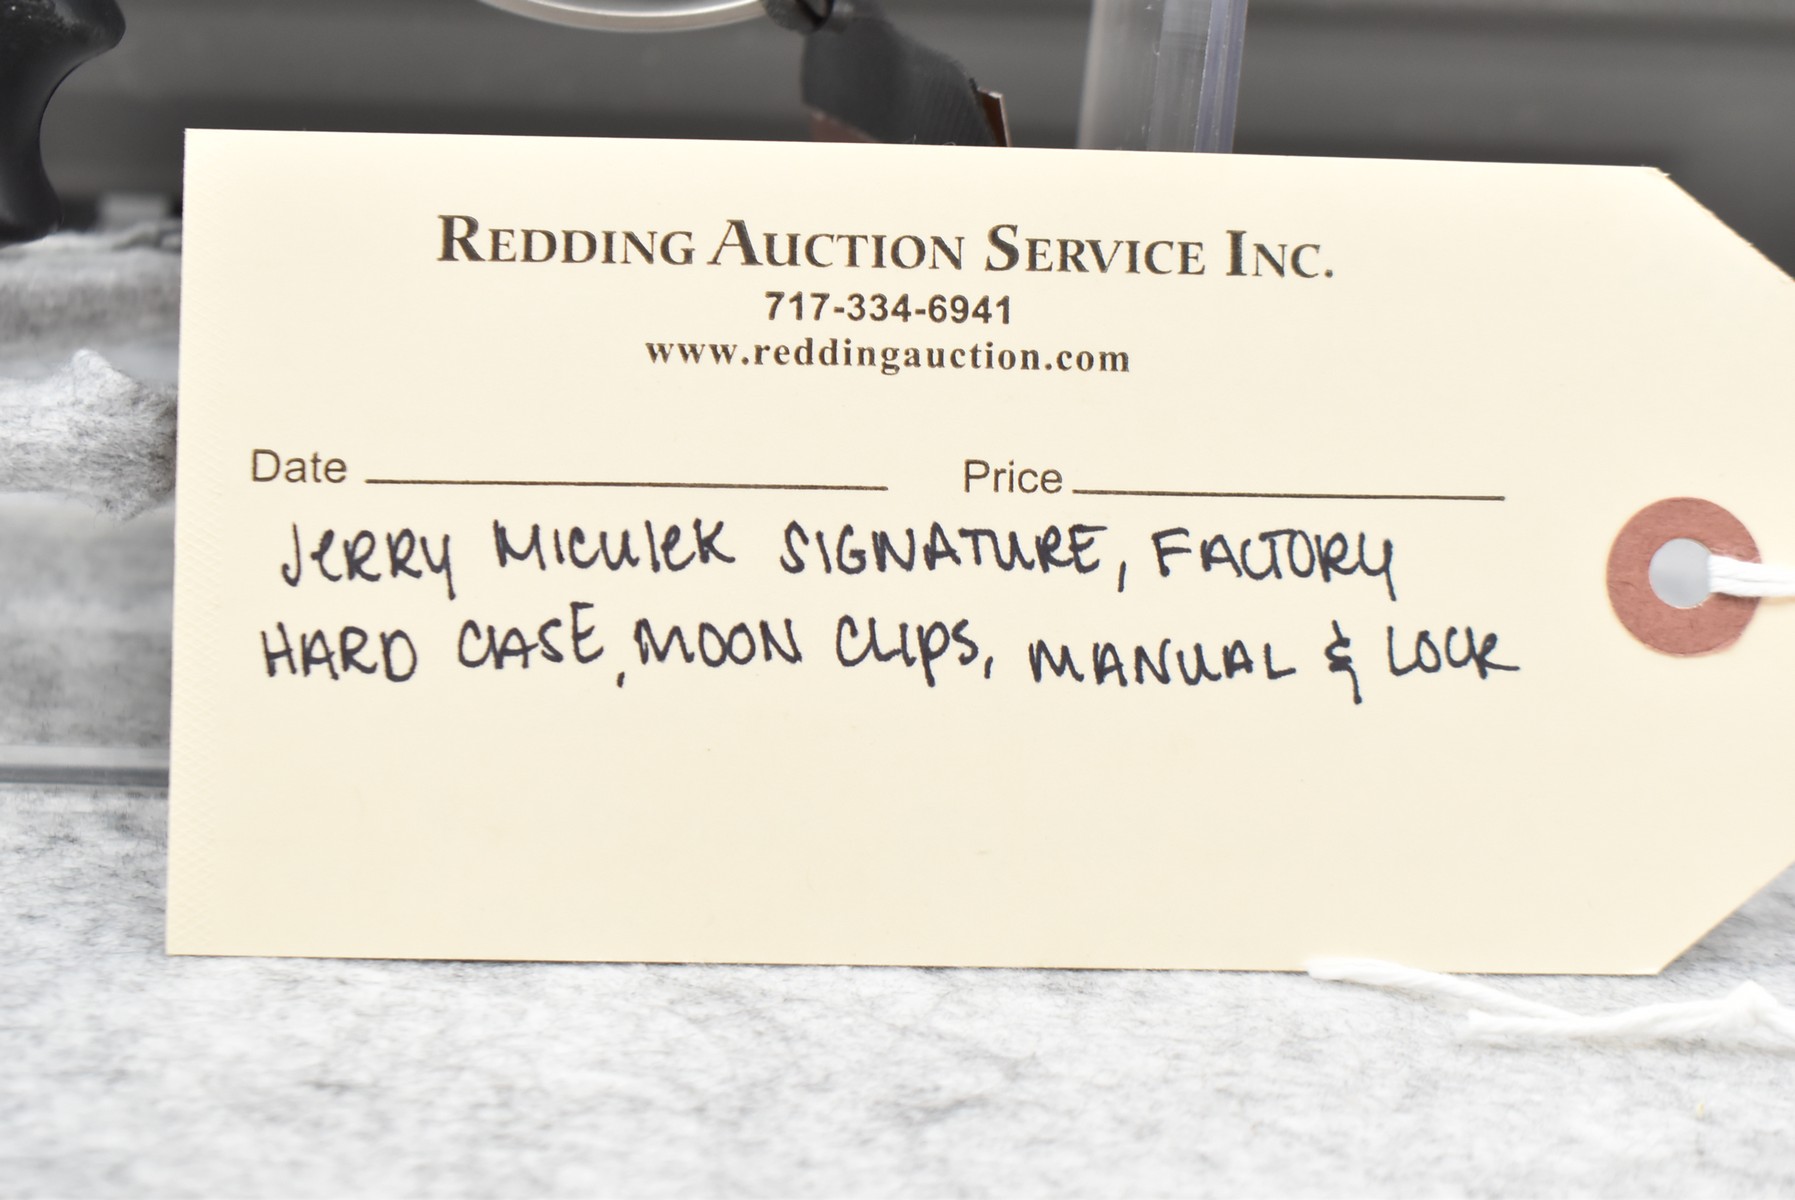 Redding Auction Service Inc.
717-334-6941
www.reddingauction.com
Date Price
JERRY MICULEK SIGNATURE, FACTORY
HARD CASE, MOON CLIPS, MANUAL & LOCK